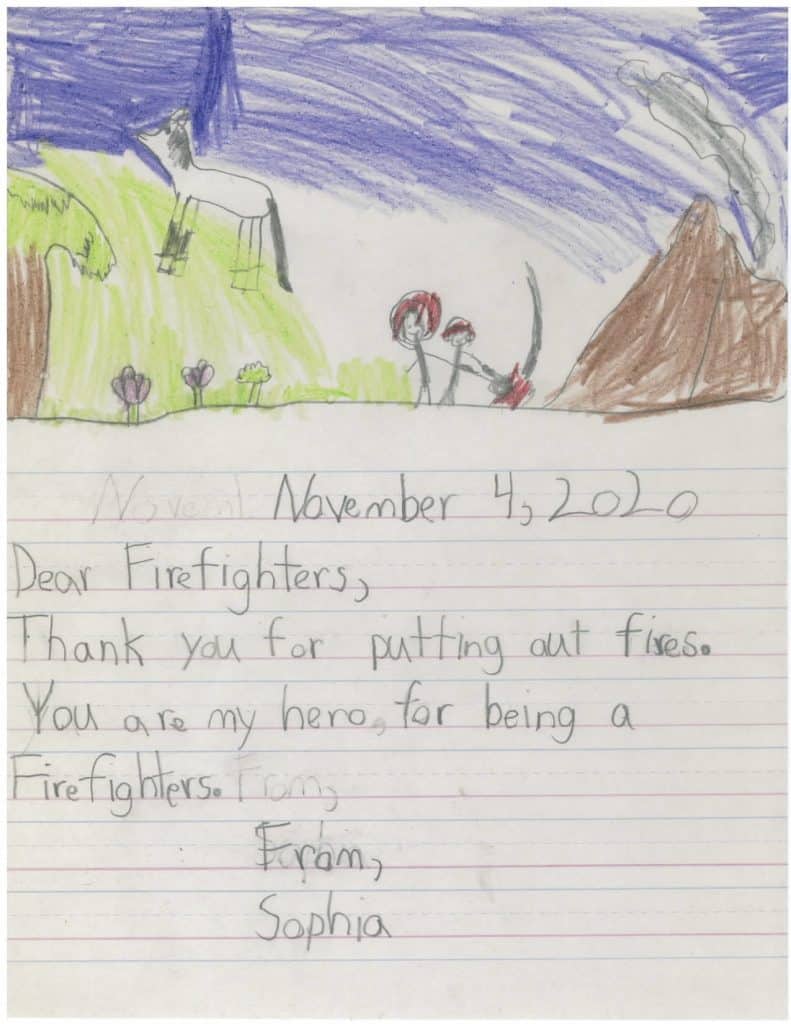 November 4, 2020
Dear Firefighters,
Thank you for putting out fires.
You are my hero, for being a
Firefighters. From,
From,
Sophia